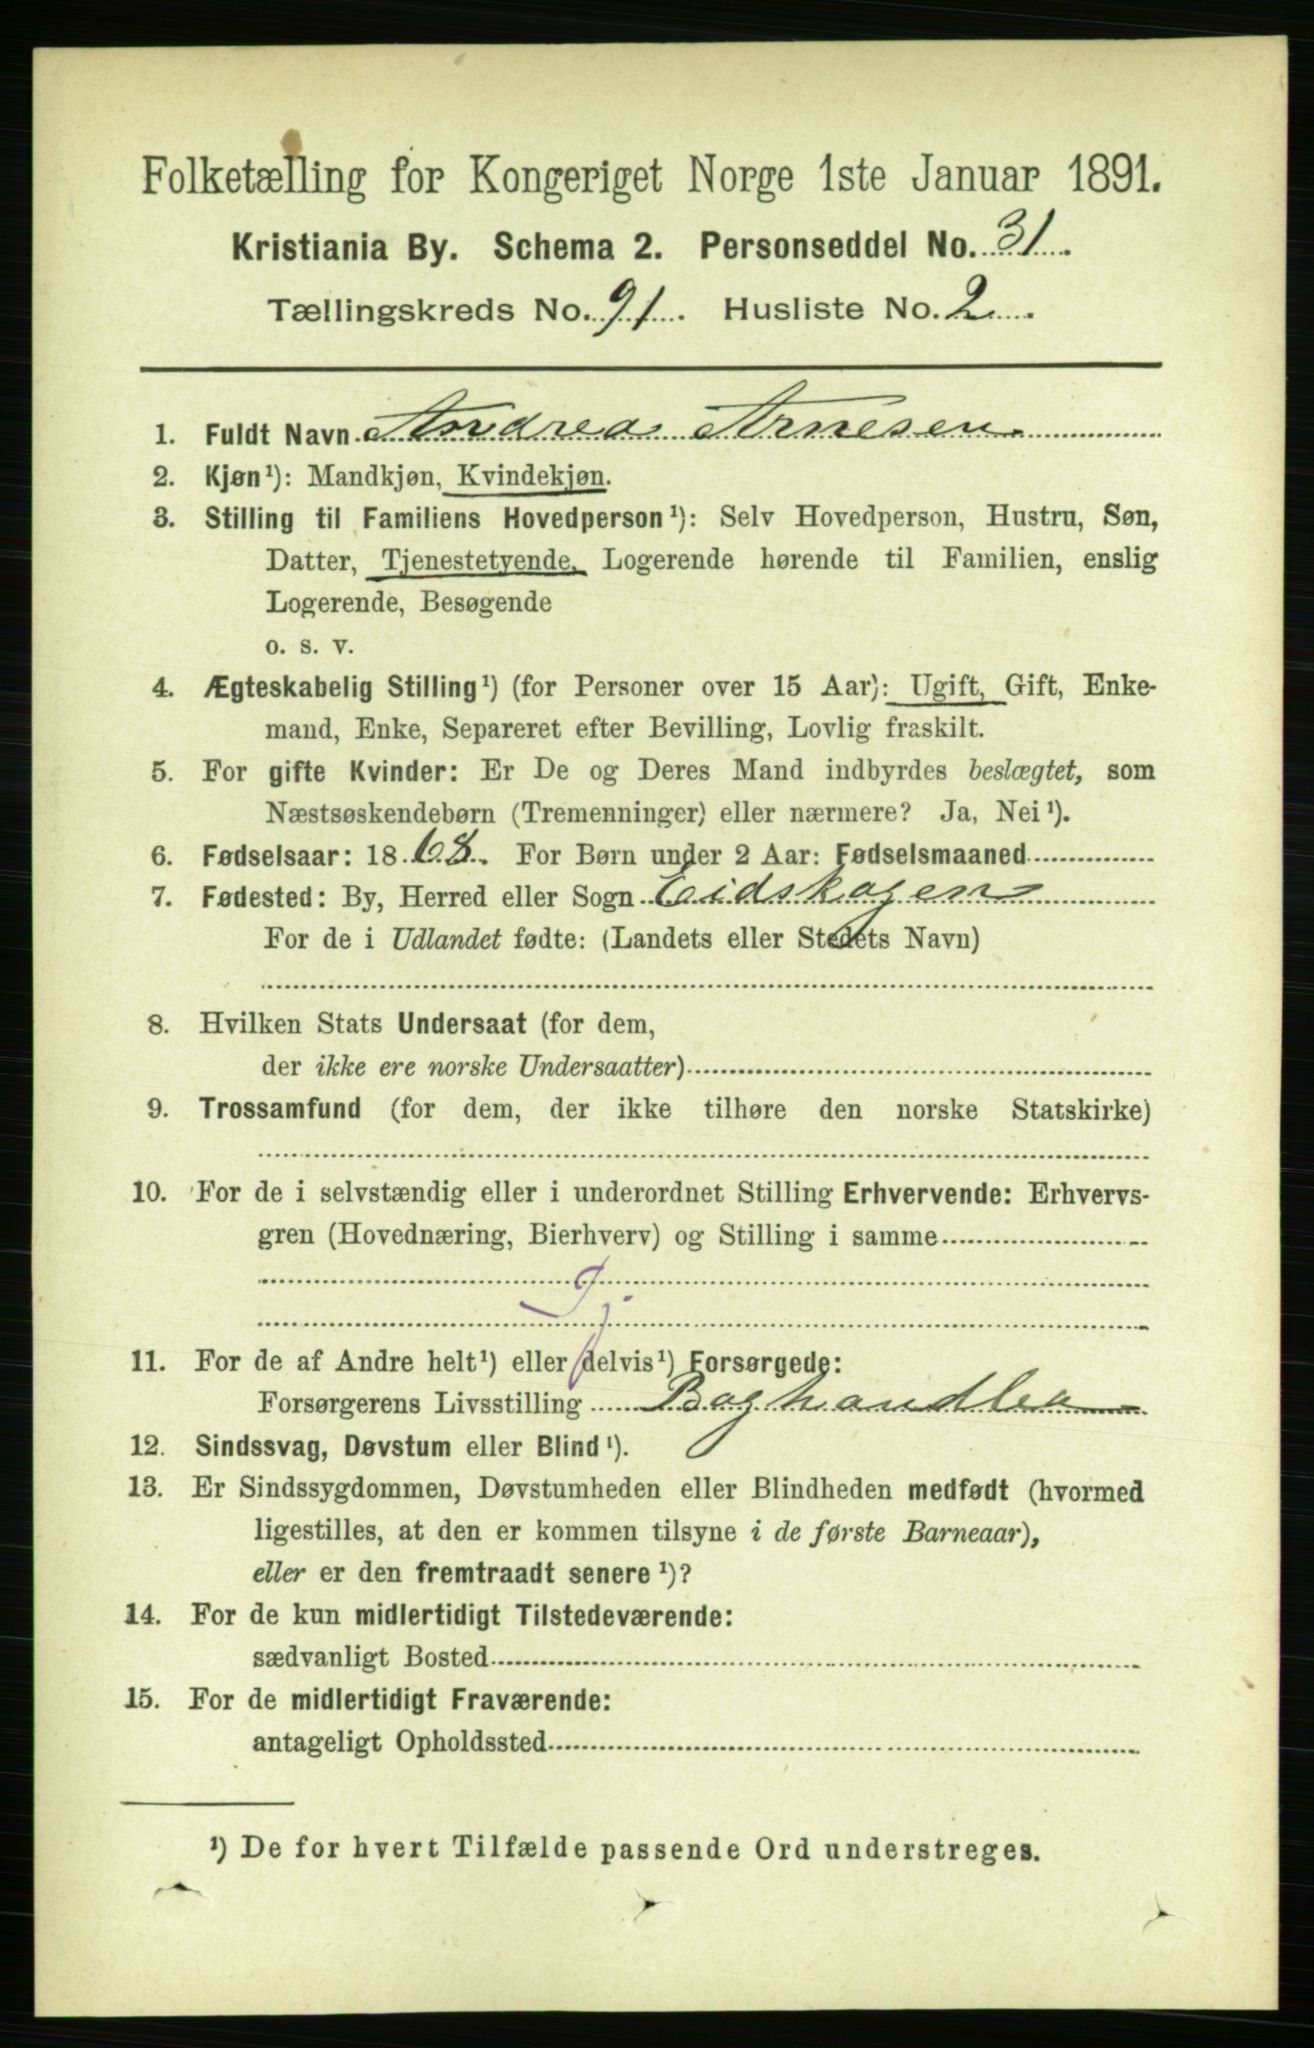 Folketælling for Kongeriget Norge 1ste Januar 1891.
Kristiania By. Schema 2. Personseddel No. 31.
Tællingskreds No. 91. Husliste No. 2.
1. Fuldt Navn Andrea Arnesen
2. Kjøn¹): Mandkjøn, Kvindekjøn.
3. Stilling til Familiens Hovedperson¹): Selv Hovedperson, Hustru, Søn,
Datter, Tjenestetyende, Logerende hørende til Familien, enslig
Logerende, Besøgende
o. s. v.
4. Ægteskabelig Stilling¹) (for Personer over 15 Aar): Ugift, Gift, Enke-
mand, Enke, Separeret efter Bevilling, Lovlig fraskilt.
5. For gifte Kvinder: Er De og Deres Mand indbyrdes beslægtet, som
Næstsøskendebørn (Tremenninger) eller nærmere? Ja, Nei¹).
6. Fødselsaar: 1868. For Børn under 2 Aar: Fødselsmaaned
7. Fødested: By, Herred eller Sogn Eidskogen
For de i Udlandet fødte: (Landets eller Stedets Navn)
8. Hvilken Stats Undersaat (for dem,
der ikke ere norske Undersaatter)
9. Trossamfund (for dem, der ikke tilhøre den norske Statskirke)
10. For de i selvstændig eller i underordnet Stilling Erhvervende: Erhvervs-
gren (Hovednæring, Bierhverv) og Stilling i samme
Tj
11. For de af Andre helt¹) eller delvis¹) Forsørgede:
Forsørgerens Livsstilling Boghandler
12. Sindssvag, Døvstum eller Blind¹).
13. Er Sindssygdommen, Døvstumheden eller Blindheden medfødt (hvormed
ligestilles, at den er kommen tilsyne i de første Barneaar),
eller er den fremtraadt senere¹)?
14. For de kun midlertidigt Tilstedeværende:
sædvanligt Bosted
15. For de midlertidigt Fraværende:
antageligt Opholdssted
¹) De for hvert Tilfælde passende Ord understreges.